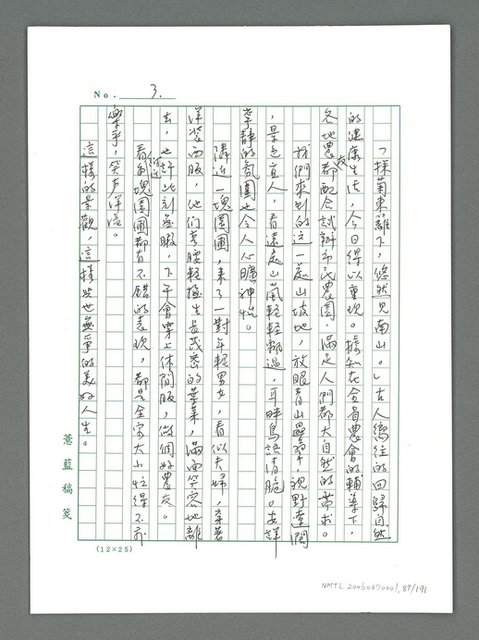 No. 3.
「採菊東籬下，悠然見南山。」古人嚮往的回歸自然
的健康生活，今日得以重現。據知在全省農會的輔導下，
各地農友都配合試辦市民農園，滿足人們都大自然的需求。
我們來到的這一處山坡地，放眼青山疊翠，視野遼闊
，景色宜人，看遠處山嵐輕輕飄過，耳畔鳥語清脆。安詳
寧靜的氛圍也令人心曠神怡。
鄰近一塊園圃，來了一對年輕男女，看似夫婦，穿著
洋裝西服，他們彎腰輕撫生長茂密的葉菜，滿面笑容地離
去，也許此刻無暇，下午會穿上休閒服，做個好農友。
看鄰近每塊園圃都有不錯的表現，都是全家大小忙得不亦
樂乎，笑聲洋溢。
這樣的景觀，這樣與世無爭的美好人生。
薏藍稿箋
(12×25)
NMTL 20060370001, 87/191